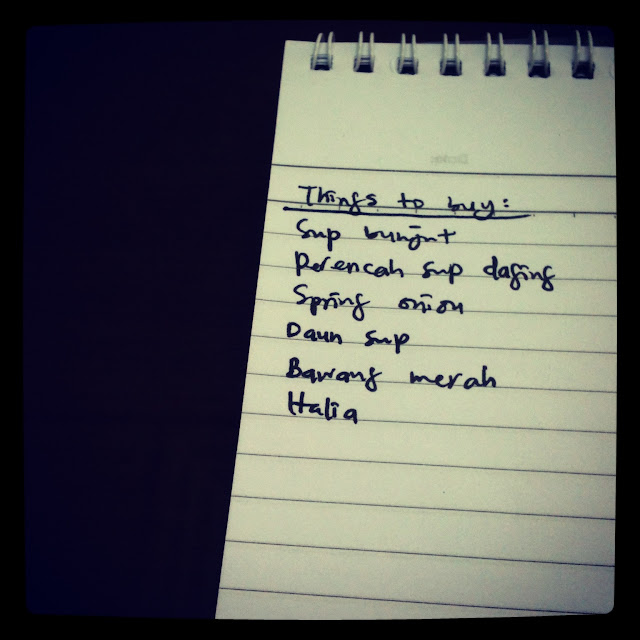 Things to buy:
Sup bunjut
Perencah sup daging
Spring onion
Daun sup
Bawang merah
Halia